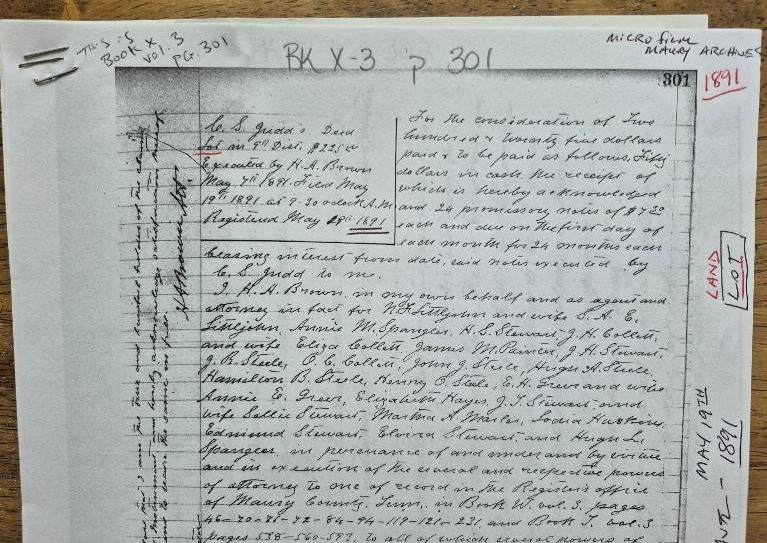 This is
Book X
vol. 3
PG. 301
BK X-3 p 301
MicroFilm
MAURY ARCHIVES
1891
301
C. S. Judd's Deed
Lot in 9th Dist. $225.00
Executed by H. A. Brown
May 7th 1891. Filed May
19th 1891 at 9-30 o clock A.M.
Registered May 29th 1891
For the consideration of Two
hundred & twenty five dollars
paid & to be paid as follows, Fifty
dollars in cash the receipt of
which is hereby acknowledged
and 24 promissory notes of $7
each and due on the first day of
each month for 24 months each
bearing interest from date, said notes executed by
C. S. Judd to me.
I, H. A. Brown, in my own behalf and as agent and
attorney in fact for Littlejohn and wife S. A. E.
Littlejohn, Annie M. Spangler, H. E. Stewart, J. H. Collett,
and wife Eliza Collett, James M. J. H. Stewart,
J. B. Steele, O. C. Collett, John J. Steele, Hugh A. Steele,
Hamilton B. Steele, Henry O. Steele, E. H. Greer and wife
Annie E. Greer, Elizabeth Hayes, J. T. Stewart and
wife Sallie Stewart, Martha A. Lodia Haskins,
Edmund Stewart, Elvira Stewart, and Hugh L.
Spangler, in persuance of and under and by virtue
and in execution of the several and respective powers
of attorney to me of record in the Register's office
of Maury County, Tenn., in Book W. vol. 3, pages
46-70-71-72-84-94-119-121-231, and Book T. vol. 3
pages 538-560-593, to all of which several powers of
H A Brown Att.
LAND
LOT
MAY 19TH
1891